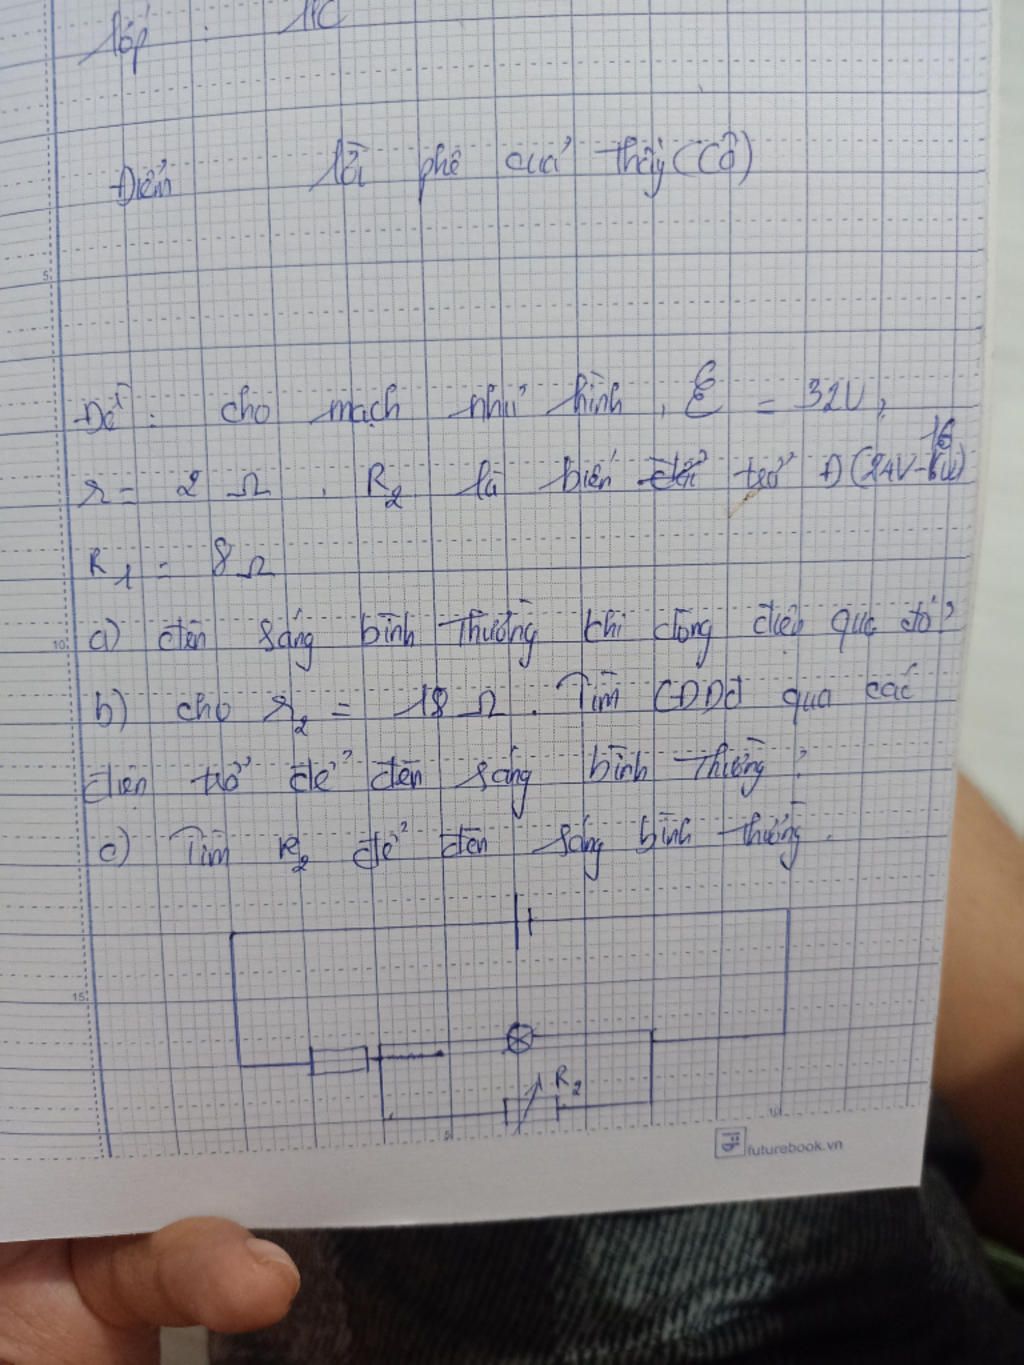 lớp : 11C
Điểm lời phê của thầy (Cô)
5
Đề : cho mạch như hình , ℰ = 32V ,
r = 2 Ω . R₂ là biến trở Đ (24V-16W)
R₁ = 8 Ω
a) đèn sáng bình thường khi dòng điện qua đó ?
10
b) cho r₂ = 18 Ω . Tìm CĐDĐ qua các
điện trở để đèn sáng bình thường ?
c) Tìm R₂ để đèn sáng bình thường .
15
R₂
5
10
futurebook.vn